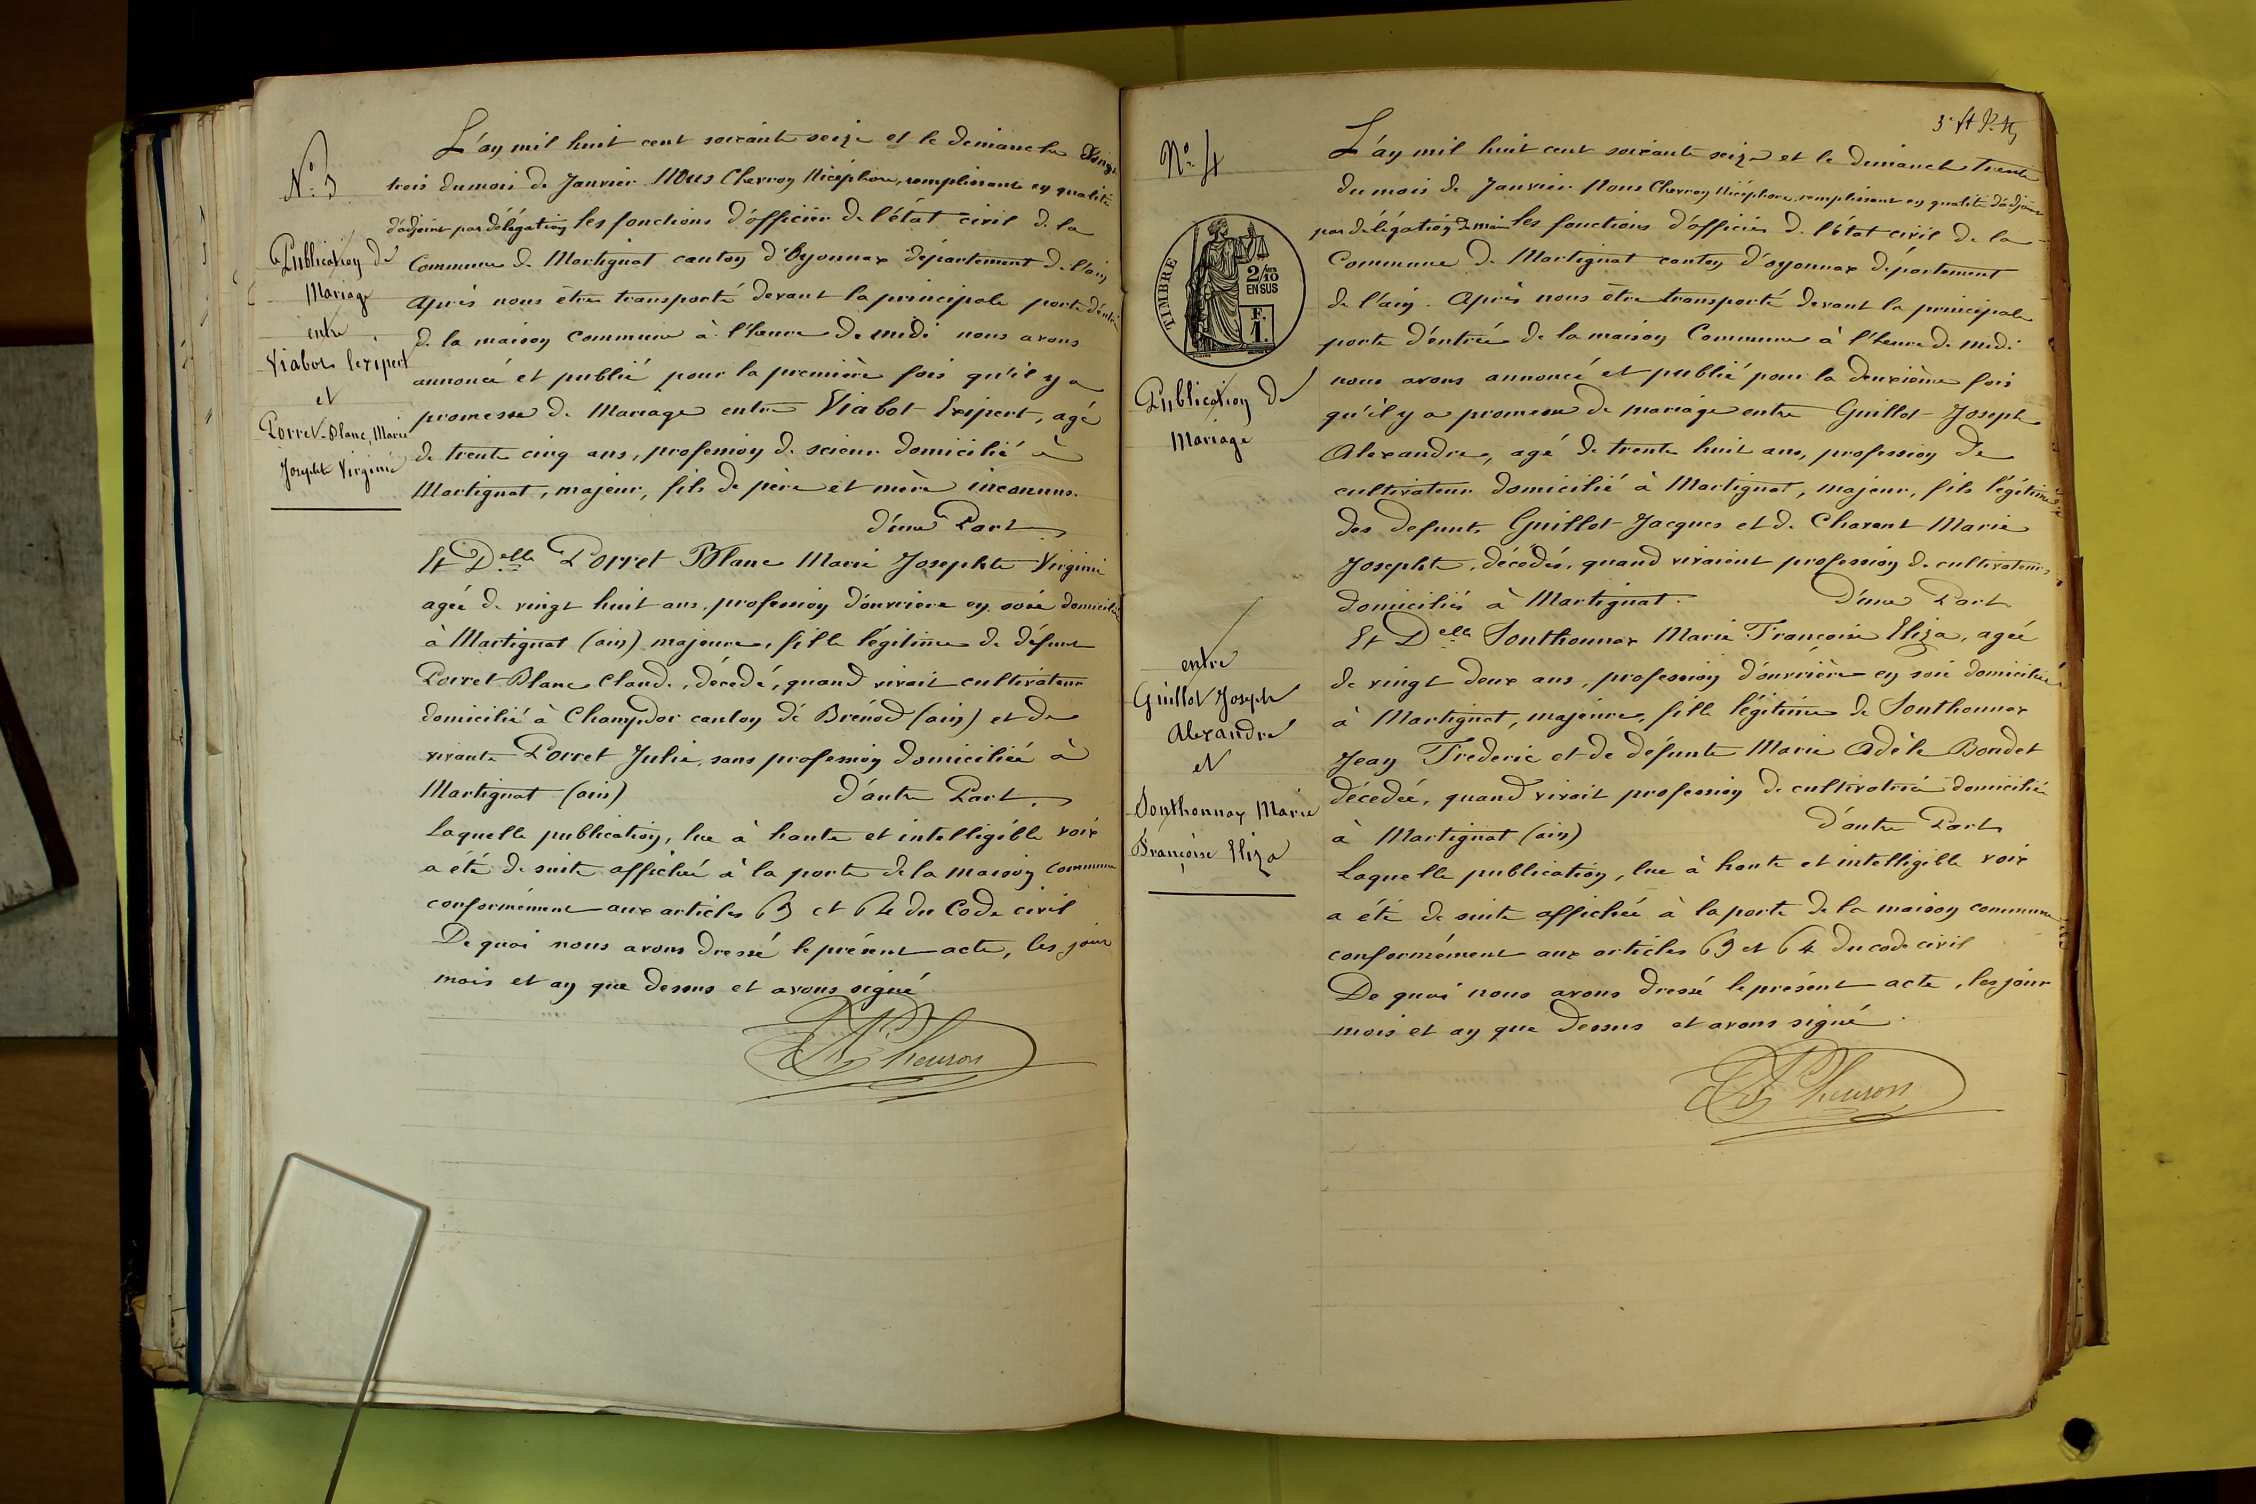 N° 3
Publication de
Mariage
entre
Viabot Exipert
et
Porret-Blanc, Marie
Josephte Virginie
L'an mil huit cent soixante seize et le dimanche vingt
trois du mois de Janvier. Nous Chevron Nicéphore, remplissant en qualité
d'adjoint par délégation les fonctions d'officier de l'état civil de la
Commune de Martignat canton d'Oyonnax département de l'ain
Après nous être transporté devant la principale porte d'entrée
de la maison commune à l'heure de midi nous avons
annoncé et publié pour la première fois qu'il y a
promesse de Mariage entre Viabot Exipert, agé
de trente cinq ans, profession de scieur domicilié à
Martignat, majeur, fils de père et mère inconnus.
d'une Part
Et Delle Porret Blanc Marie Josephte Virginie
agée de vingt huit ans, profession d'ouvrière en soie domiciliée
à Martignat (ain) majeure, fille légitime de défunt
Porret-Blanc Claude, décédé, quand vivait cultivateur
domicilié à Champdor canton de Brénod (ain) et de
vivante Porret Julie, sans profession domiciliée à
Martignat (ain) d'autre Part.
Laquelle publication, lue à haute et intelligible voix
a été de suite affichée à la porte de la maison commune
conformément aux articles 63 et 64 du Code civil
De quoi nous avons dressé le présent acte, les jour
mois et an que dessus et avons signé
N. Chevron
N° 4
TIMBRE
2/10
EN SUS
F.
1.
Publication de
Mariage
entre
Guillot Joseph
Alexandre
et
Sonthonnax Marie
Françoise Eliza
L'an mil huit cent soixante seize et le dimanche trente
du mois de Janvier. Nous Chevron Nicéphore, remplissant en qualité d'adjoint
par délégation les fonctions d'officier de l'état civil de la
Commune de Martignat canton d'oyonnax département
de l'ain. Après nous être transporté devant la principale
porte d'entrée de la maison Commune à l'heure de midi
nous avons annoncé et publié pour la deuxième fois
qu'il y a promesse de mariage entre Guillot Joseph
Alexandre, agé de trente huit ans, profession de
cultivateur domicilié à Martignat, majeur, fils légitime
des defunts Guillot Jacques et de Charent Marie
Josephte, décédés, quand vivaient profession de cultivateurs
domiciliés à Martignat. d'une Part.
Et Delle Sonthonnax Marie Francoise Eliza, agée
de vingt deux ans, profession d'ouvrière en soie domiciliée
à Martignat, majeure, fille légitime de Sonthonnax
Jean Frederic et de défunte Marie Adèle Bondet
décédée, quand vivait profession de cultivatrice domiciliée
à Martignat (ain) d'autre Part
Laquelle publication, lue à haute et intelligible voix
a été de suite affichée à la porte de la maison commune
conformément aux articles 63 et 64 du code civil
De quoi nous avons dressé le présent acte, les jour
mois et an que dessus et avons signé.
N. Chevron